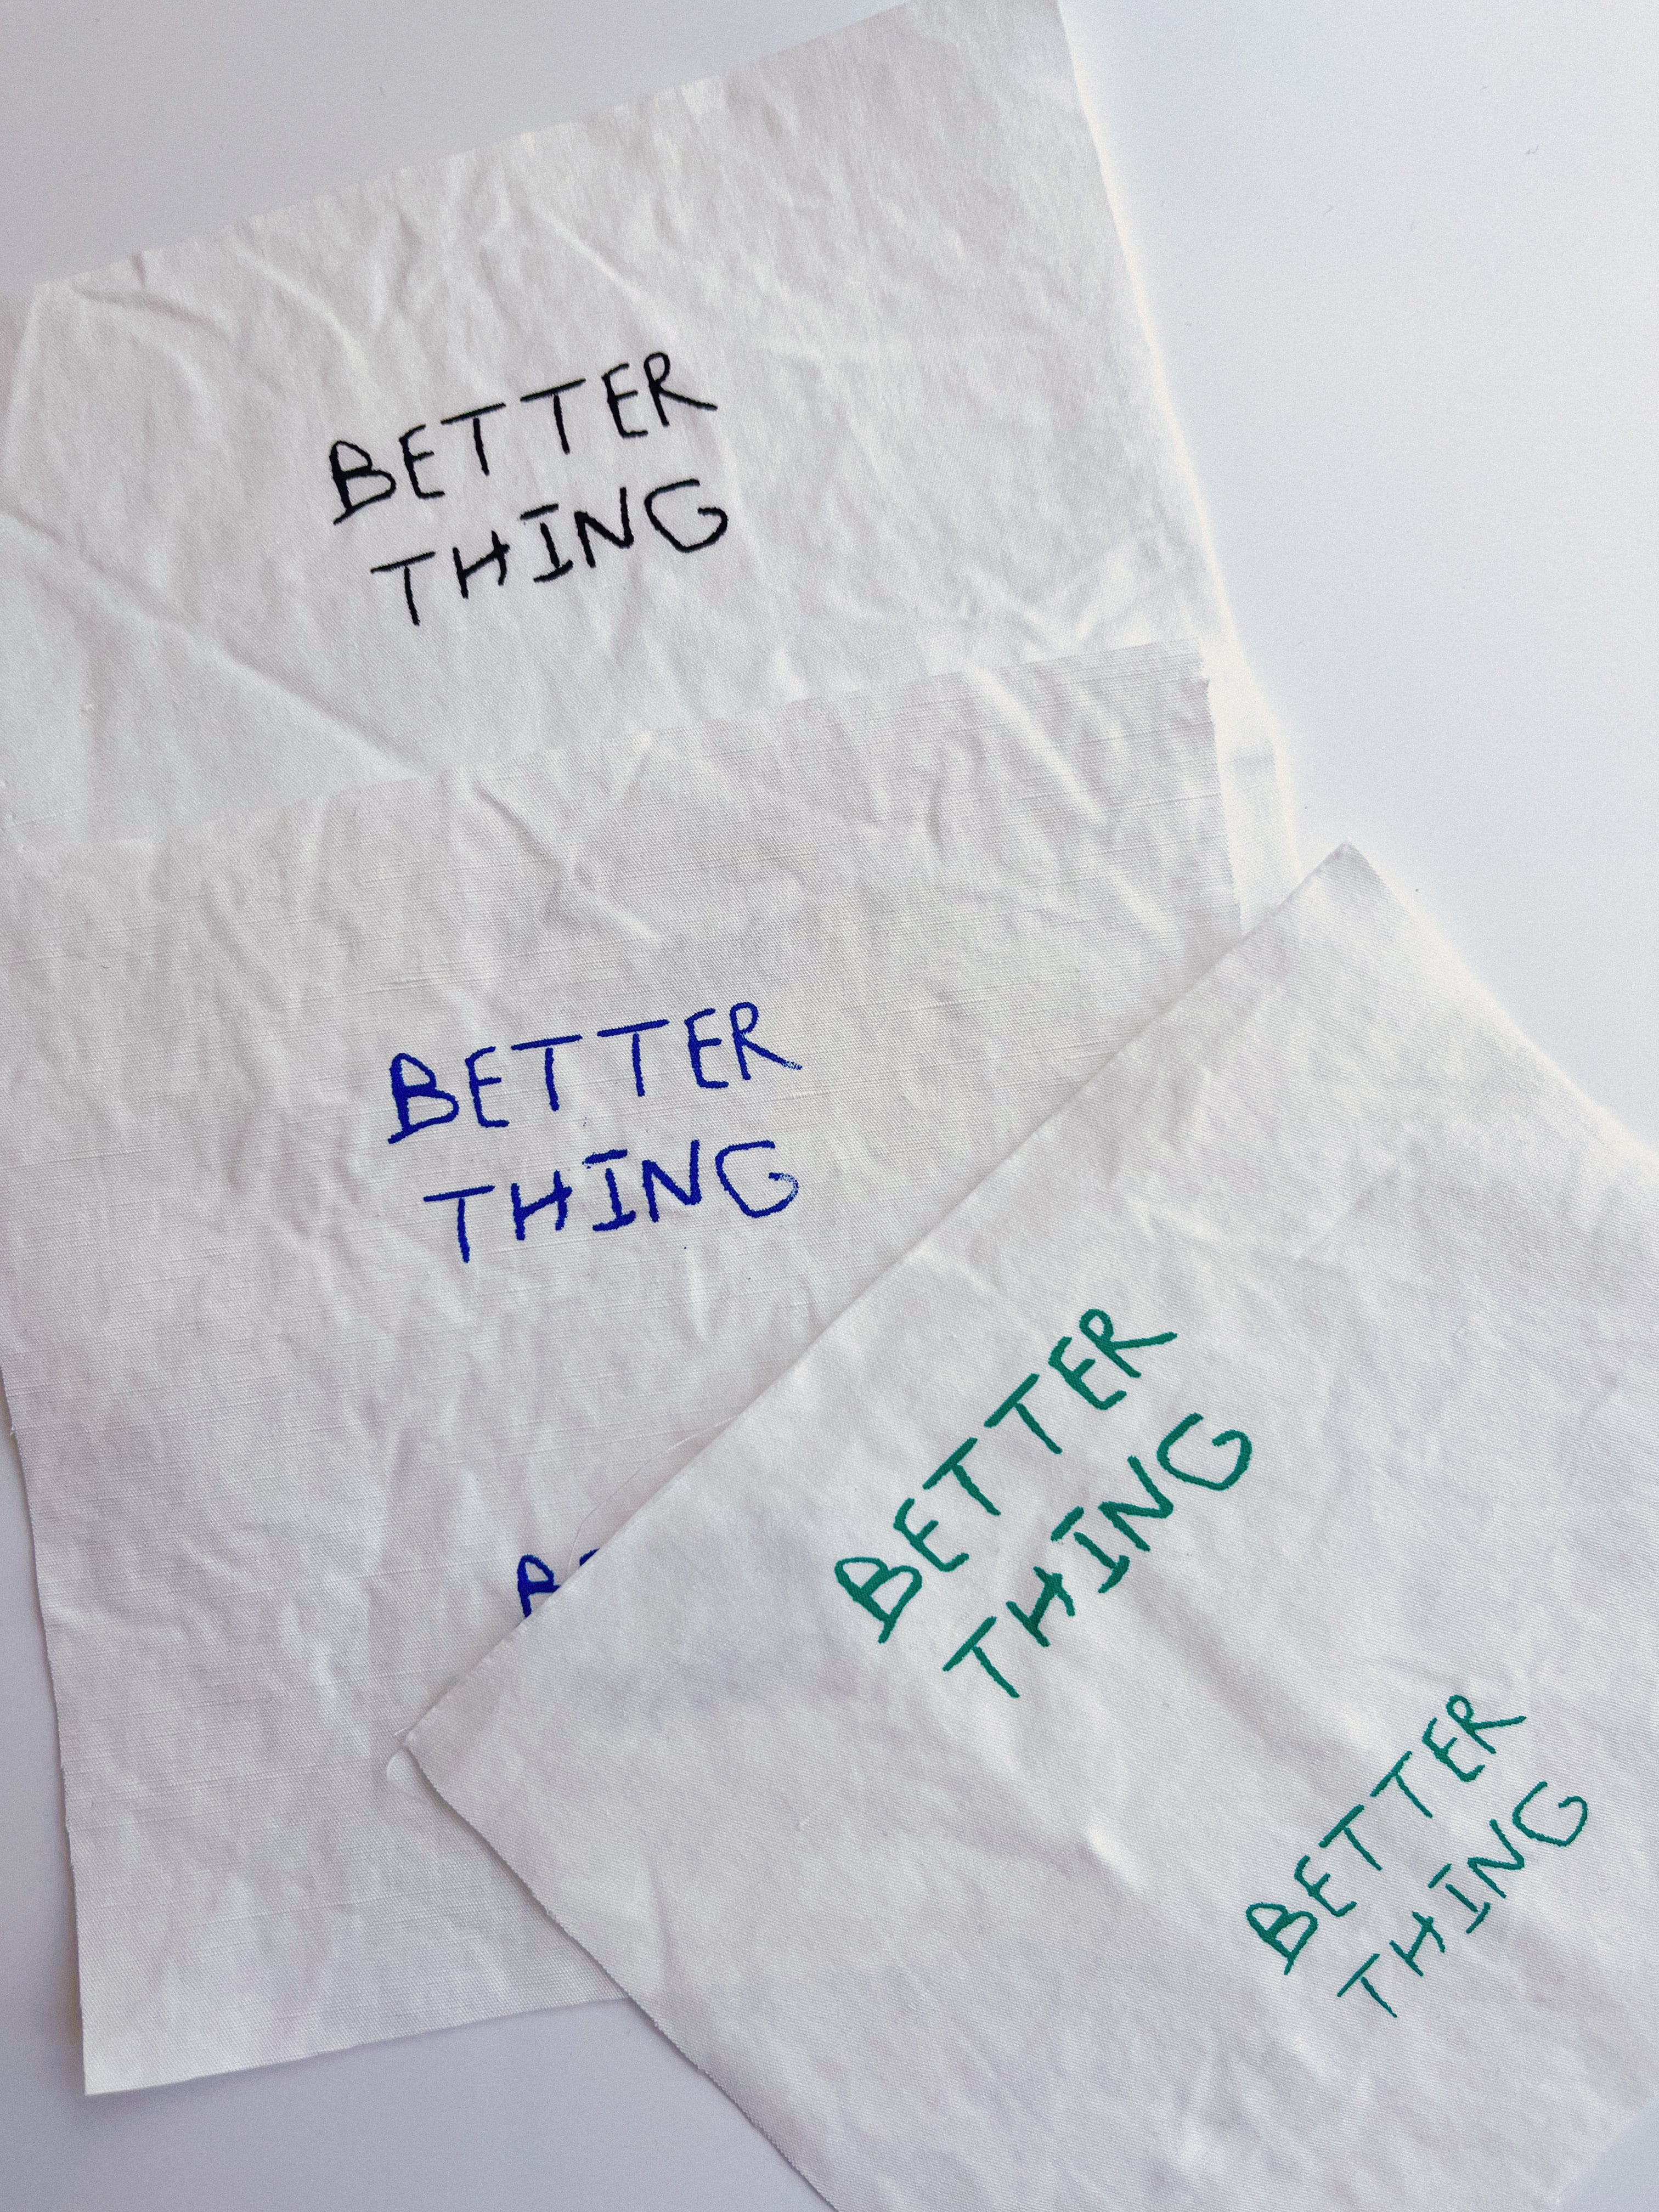 BETTER
THING
BETTER
THING
BETTER
THING
BETTER
THING